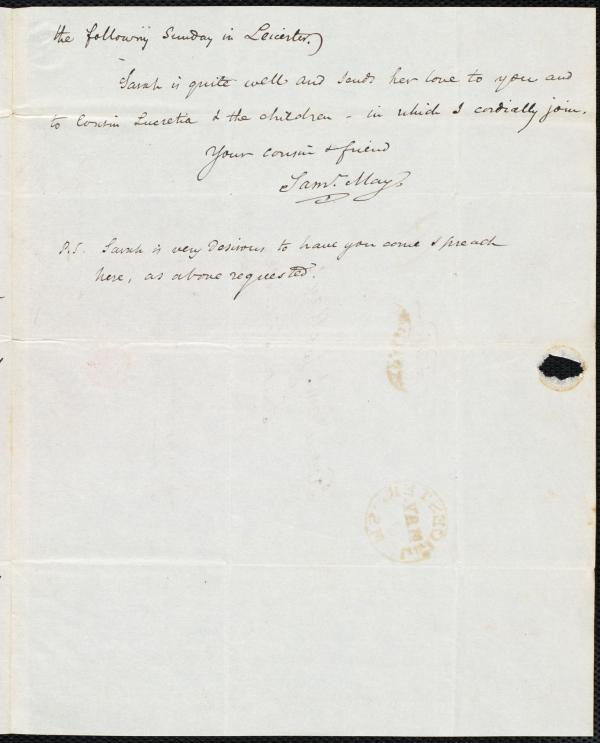 the following Sunday in Leicester.)
Sarah is quite well and sends her love to you and
to Cousin Lucretia & the children - in which I cordially join.
Your cousin & friend
Saml. May
P.S. Sarah is very desirous to have you come & preach
here, as above requested.